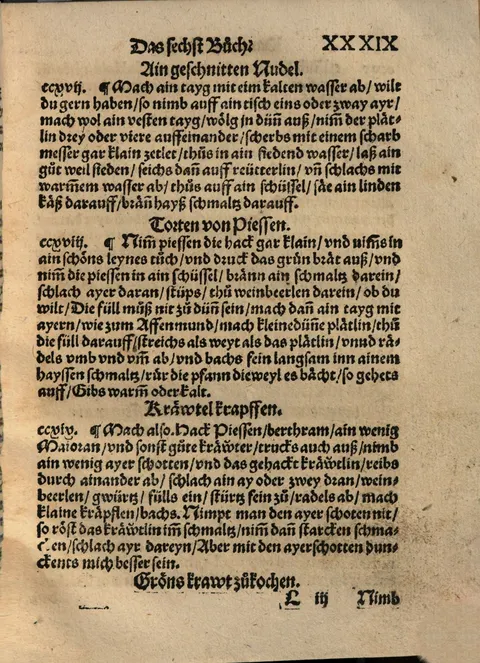 Das sechst Bůch. XXXIX
Ain geschnitten Nudel.
ccxvij. ¶ Mach ain tayg mit eim kalten wasser ab/wilt
du gern haben/so nimb auff ain tisch eins oder zway ayr/
mach wol ain vesten tayg/wölg jn dün̄ auß/nim̄ der plåt-
lin drey oder viere auffeinander/scherbs mit einem scharb
messer gar klain zetlet/thůs in ain siedend wasser/laß ain
gůt weil sieden/seichs dan̄ auff reütterlin/vn̄ schlachs mit
warmem wasser ab/thůs auff ain schüssel/såe ain linden
kåß darauff/brån̄ hayß schmaltz darauff.
Torten von Piessen.
ccxviij. ¶ Nim̄ piessen die hack gar klain/vnd nim̄s in
ain schöns leynes tůch/vnd druck das grün bråt auß/vnd
nim̄ die piessen in ain schüssel/brånn ain schmaltz darein/
schlach ayer daran/stüps/thů weinbeerlen darein/ob du
wilt/Die füll můß nit zů dün̄ sein/mach dan̄ ain tayg mit
ayern/wie zum Affenmund/mach kleine dün̄e plåtlin/thů
die füll darauff/streichs als weyt als das plåtlin/vnnd rå-
dels vmb vnd vm̄ ab/vnd bachs fein langsam inn ainem
hayssen schmaltz/rür die pfann dieweyl es bächt/so gehets
auff/Gibs warm̄ oder kalt.
Kråwtel krapffen.
ccxix. ¶ Mach also. Hack Piessen/berthram/ain wenig
Maioran/vnd sonst gůte kråwter/trucks auch auß/nimb
ain wenig ayer schotten/vnd das gehackt kråwtlin/reibs
durch ainander ab/schlach ain ay oder zwey dran/wein-
beerlen/gwürtz/fülls ein/stürtz fein zů/radels ab/mach
klaine kråpflen/bachs. Nimpt man den ayer schoten nit/
so röst das kråwtlin im̄ schmaltz/nim̄ dan̄ starcken schma-
en/schlach ayr dareyn/Aber mit den ayerschotten dun-
ckents mich besser sein.
Gröns krawt zůkochen.
L iij Nimb